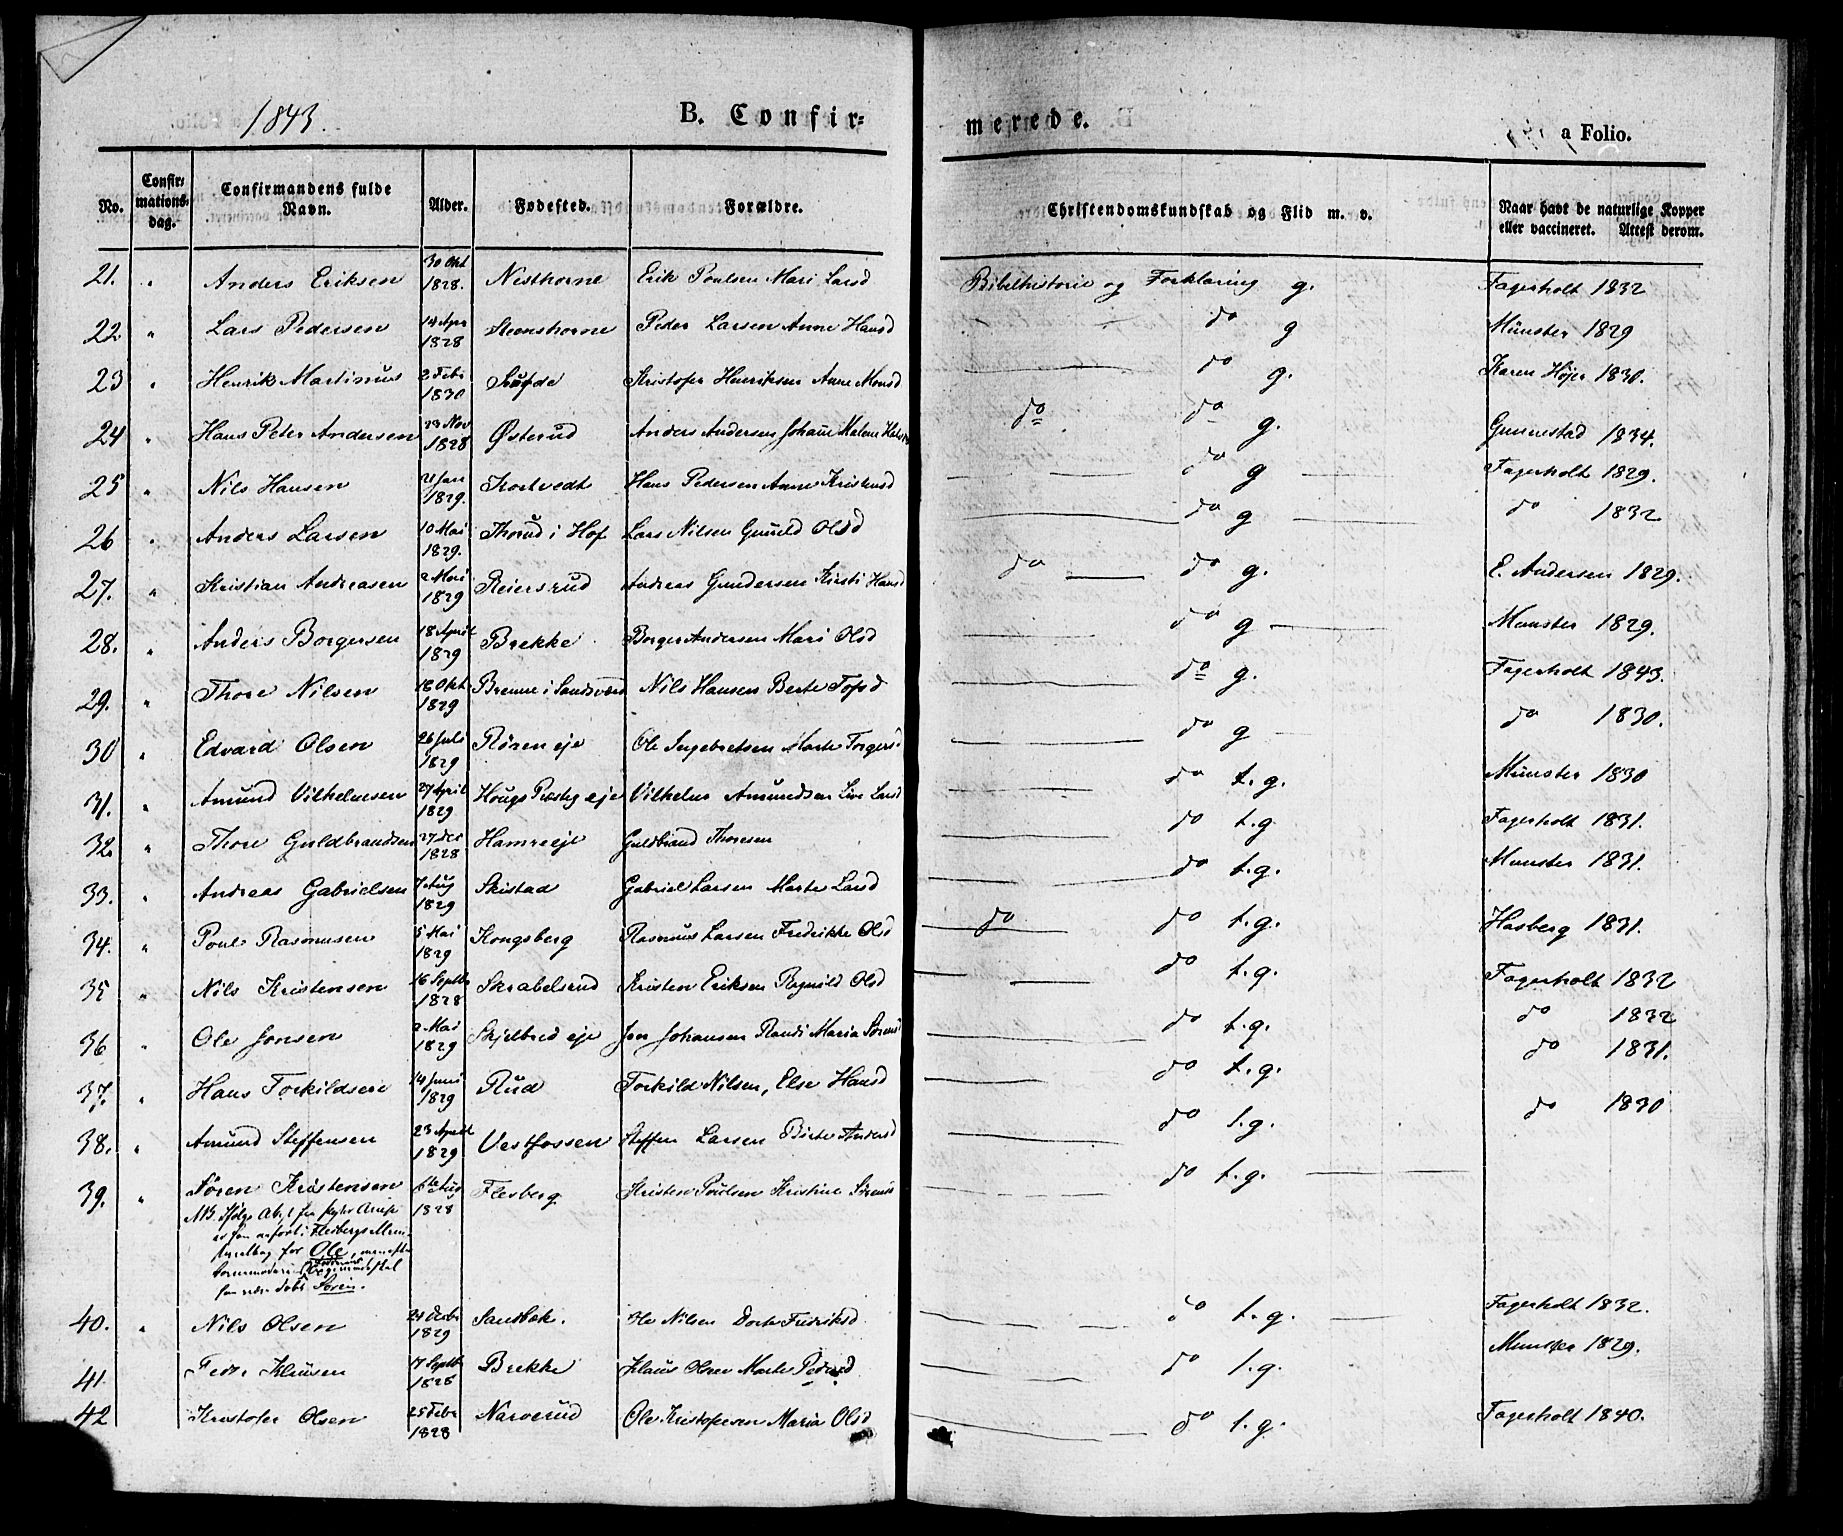 1843.
B. Confir=
merede.
a Folio.
No. Confir=mations=dag. Confirmandens fulde Navn. Alder. Fødested. Forældre. Christendomskundskab og Flid m. v. Naar havt de naturlige Kopper eller vaccineret. Attest derom.
21. " Anders Eriksen 30 Okt 1828. Nesthorne Erik Poulsen Mari Larsd Bibelhistorie og Forklaring g. Fagerholt 1832
22 " Lars Pedersen 14 Apr 1828 Steenshorne Peder Larsen Anne Hansd do g Münster 1829
23 " Henrik Martinus 2 Feb 1830 Kristofer Henriksen Anne Monsd do g. Karen Højer 1830.
24 " Hans Peter Andersen 23 Nov 1828 Østerud Anders Andersen Johanne Malene do do g. Gunnestad 1834.
25 " Nils Hansen 21 Jan 1829. Kortvedt Hans Pedersen Anne Kristensd do g Fagerholt 1829.
26 " Anders Larsen 10 Mai 1829. Thorud i Hof Lars Nilsen Gunild Olsd do g do 1832
27. " Kristian Andreasen 2 Mai 1829 Reiersrud Andreas Gundersen Kirsti Hansd do do g. E. Andersen 1829.
28. " Anders Borgersen 18 April 1829 Brekke Borger Andersen Mari Olsd do g Munster 1829.
29. " Thore Nilsen 18 Okt 1829 Brenne i Sandsværd Nils Hansen Berte Tofsd do g. Fagerholt 1843.
30 " Edvard Olsen 26 Juli 1829 Røren eje Ole Ingebretsen Marte Torgersd do g do 1830.
31. " Amund Vilhelmsen 27 April 1829 Hougs Præstg eje Vilhelm Amundsen Live Larsd do t.g. Münster 1830
32. " Thore Guldbrandsen 27 Dec 1828 Hamre eje Guldbrand Thoresen do t.g Fagerholt 1831.
33. " Andreas Gabrielsen 7 Aug 1829 Skistad Gabriel Larsen Marte Larsd do t.g. Munster 1831.
34. " Poul Rasmusen 5 Mai 1829 Kongsberg Rasmus Larsen Fredrikke Olsd do do t.g. Hasberg 1831.
35 " Nils Kristensen 16 Septbr 1828 Skrabelsrud Kristen Eriksen Ragnild Olsd do t.g. Fagerholt 1832
36 " Ole Jonsen 2 Mai 1829 Skjelbred eje Jon Johansen Randi Maria Sørensd do t.g. do 1832
37. " Hans Torkildsen 14 Juni 1829 Rud Torkild Nilsen, Else Hansd do t.g. do 1831.
38. " Amund Steffensen 23 April 1829 Vestfossen Steffen Larsen Birte Andersd do t.g. do 1830
39. " Søren Kristensen 6te Aug 1828 Flesberg Kristen Poulsen Kristine Sørensd do t.g.
NB. Ifølge Att. fra
er han anført i Flesbergs
for Ole,
han være døbt Søren.
40. " Nils Olsen 1829 Sandbæk. Ole Nilsen Dorte Fredriksd do t.g. Fagerholt 1832.
41 Peder Klausen 17 Septbr 1828 Brekke Klaus Olsen Marte Pedersd do t.g. Munster 1829.
42 Kristofer Olsen 25 Febr 1828 Narverud Ole Kristofersen Maria Olsd do t.g. Fagerholt 1840.